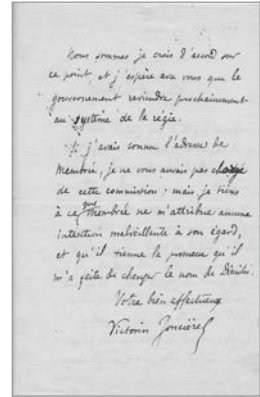 Nous sommes je crois d'accord sur
ce point, et j'espère avec vous que le
gouvernement reviendra prochainement
au système de la régie.
Si j'avais connu l'adresse de
Membrée, je ne vous aurais pas chargé
de cette commission ; mais je tiens
à ce que Membrée ne m'attribue aucune
intention malveillante à son égard,
et qu'il tienne la promesse qu'il
m'a faite de changer le nom de Dimitri.
Votre bien affectueux
Victorin Joncières